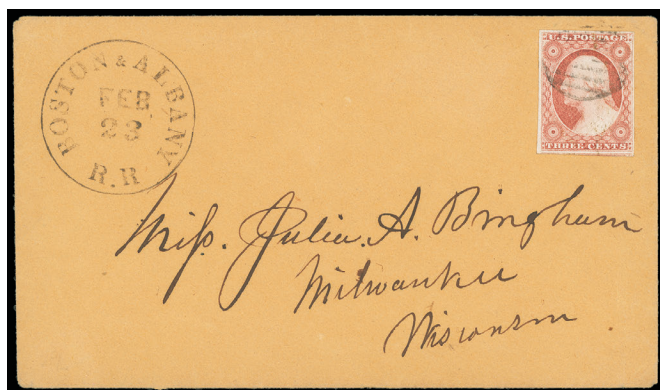 BOSTON & ALBANY
FEB
23
R.R
U.S. POSTAGE
THREE CENTS
Miſs. Julia. A. Bingham
Milwaukee
Wisconsin